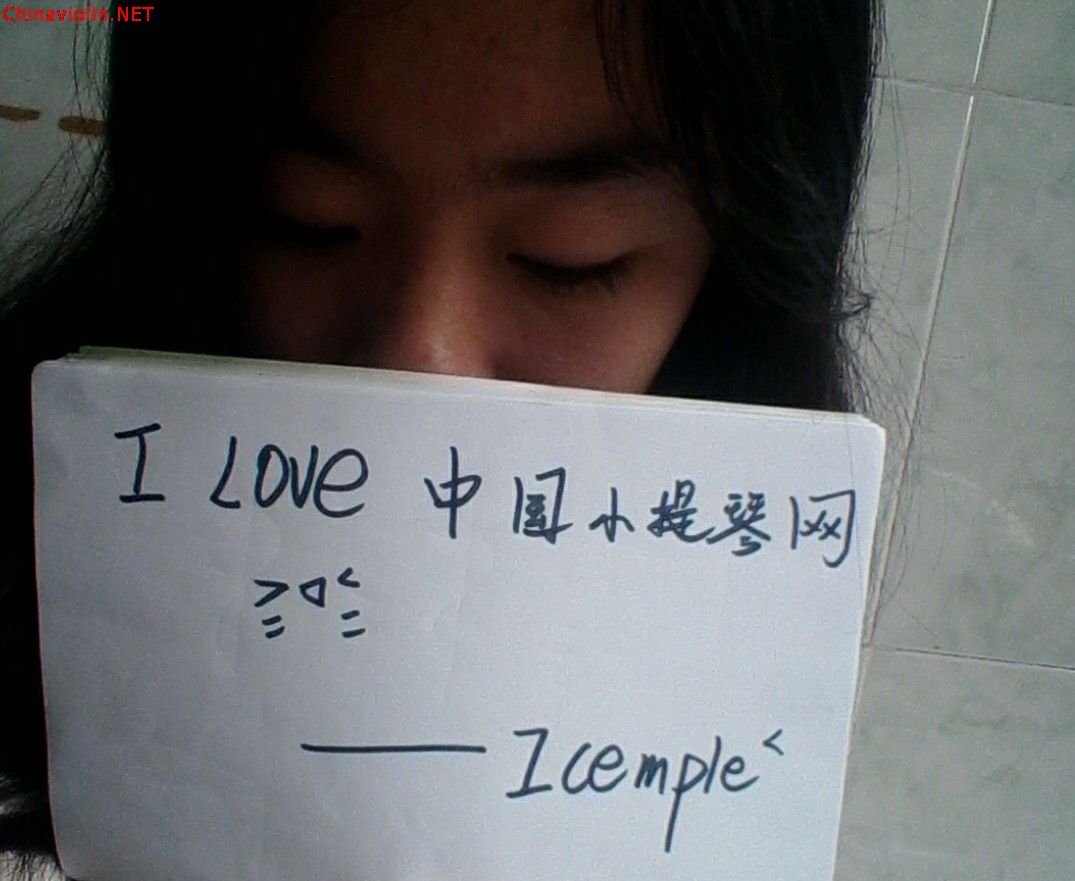 Chinaviolin.NET
I Love 中国小提琴网
>◁<
—— Icemple<